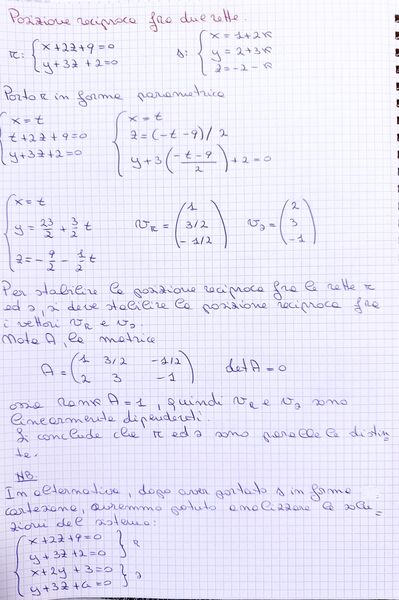 Posizione reciproca fra due rette.
r: { x+2z+9=0
y+3z+2=0
s: { x = 1+2k
y = 2+3k
z = -2-k
Porto r in forma parametrica
{ x=t
t+2z+9=0
y+3z+2=0
{ x=t
z=(-t-9)/2
y+3((-t-9)/2)+2=0
{ x=t
y= 23/2 + 3/2 t
z=- 9/2 - 1/2 t
vr = (1
3/2
-1/2)
vs = (2
3
-1)
Per stabilire la posizione reciproca fra le rette r
ed s, si deve stabilire la posizione reciproca fra
i vettori vr e vs.
Nota A, la matrice
A = (1 3/2 -1/2
2 3 -1) det A = 0
ossia rank A = 1, quindi vr e vs sono
linearmente dipendenti.
Si conclude che r ed s sono parallele distin-
te.
NB
In alternativa, dopo aver portato s in forma
cartesiana, avremmo potuto analizzare le solu-
zioni del sistema:
{ x+2z+9=0
y+3z+2=0 } r
x+2y+3=0
y+3z+4=0 } s